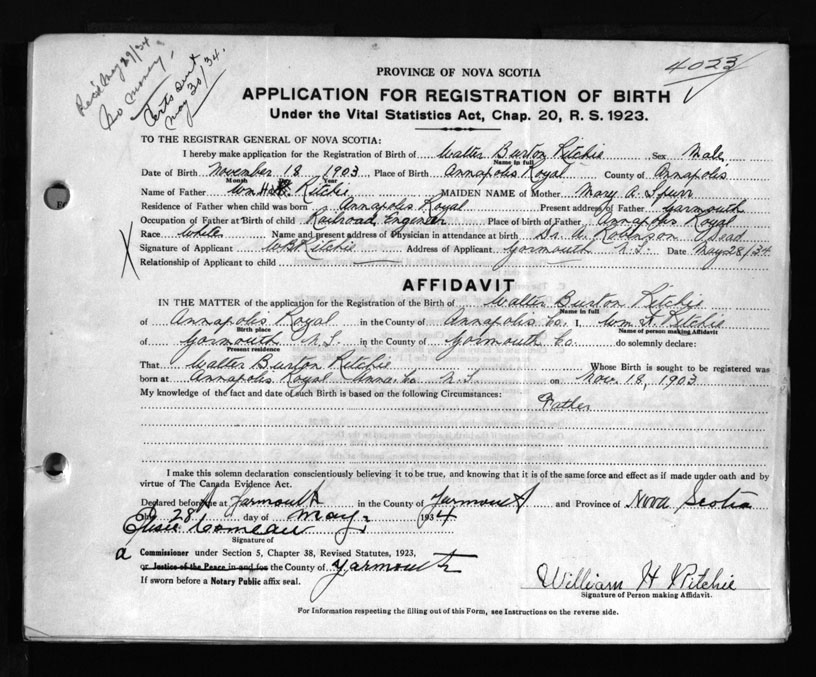 Rec'd May 29/34
No money,
Certs sent
May 30/34.
4023
PROVINCE OF NOVA SCOTIA
APPLICATION FOR REGISTRATION OF BIRTH
Under the Vital Statistics Act, Chap. 20, R. S. 1923.
TO THE REGISTRAR GENERAL OF NOVA SCOTIA:
I hereby make application for the Registration of Birth of Walter Burton Ritchie Sex Male
Name in full
Date of Birth November 18 1903 Place of Birth Annapolis Royal County of Annapolis
Month Day Year
Name of Father Wm H Ritchie MAIDEN NAME of Mother Mary A. Spurr
Residence of Father when child was born Annapolis Royal Present address of Father Yarmouth
Occupation of Father at Birth of child Railroad Engineer Place of birth of Father Annapolis Royal
Race White Name and present address of Physician in attendance at birth Dr. A. Robinson Dead
Signature of Applicant W B Ritchie Address of Applicant Yarmouth N.S. Date May 28/34
Relationship of Applicant to child
AFFIDAVIT
IN THE MATTER of the application for the Registration of the Birth of Walter Burton Ritchie
Name in full
of Annapolis Royal in the County of Annapolis Co. I, Wm H. Ritchie
Birth place Name of person making Affidavit
of Yarmouth N.S. in the County of Yarmouth Co. do solemnly declare:
Present residence
That Walter Burton Ritchie Whose Birth is sought to be registered was
born at Annapolis Royal Anna. Co N.S. on Nov. 18, 1903
My knowledge of the fact and date of such Birth is based on the following Circumstances: Father
I make this solemn declaration conscientiously believing it to be true, and knowing that it is of the same force and effect as if made under oath and by
virtue of The Canada Evidence Act.
Declared before me at Yarmouth in the County of Yarmouth and Province of Nova Scotia
this 28 day of May, 1934
Elsie Comeau
Signature of
a Commissioner under Section 5, Chapter 38, Revised Statutes, 1923,
or Justice of the Peace in and for the County of Yarmouth
If sworn before a Notary Public affix seal.
William H Ritchie
Signature of Person making Affidavit.
For Information respecting the filling out of this Form, see Instructions on the reverse side.